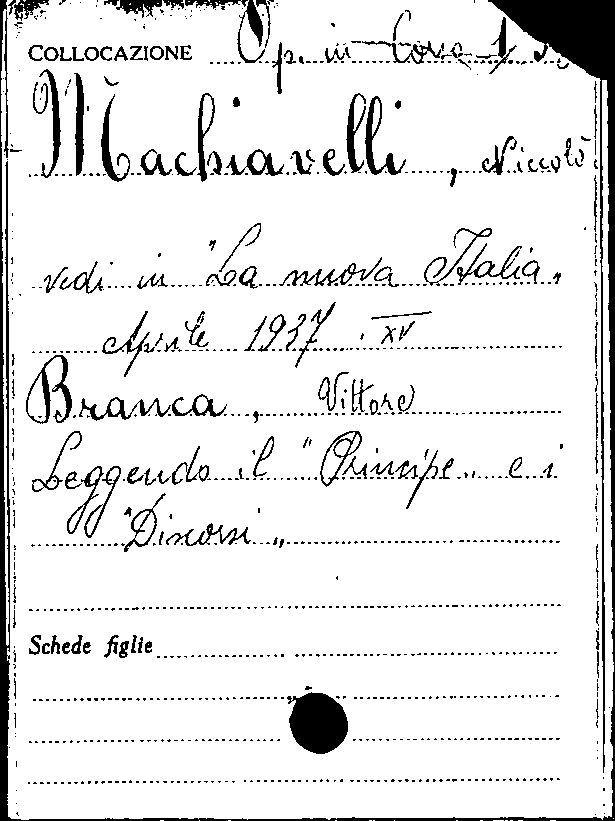 COLLOCAZIONE Op. in Corso 1
Machiavelli, Niccolò
vedi in "La nuova Italia„
Aprile 1937. XV
Branca, Vittore
Leggendo il "Principe„ e i
"Discorsi„
Schede figlie